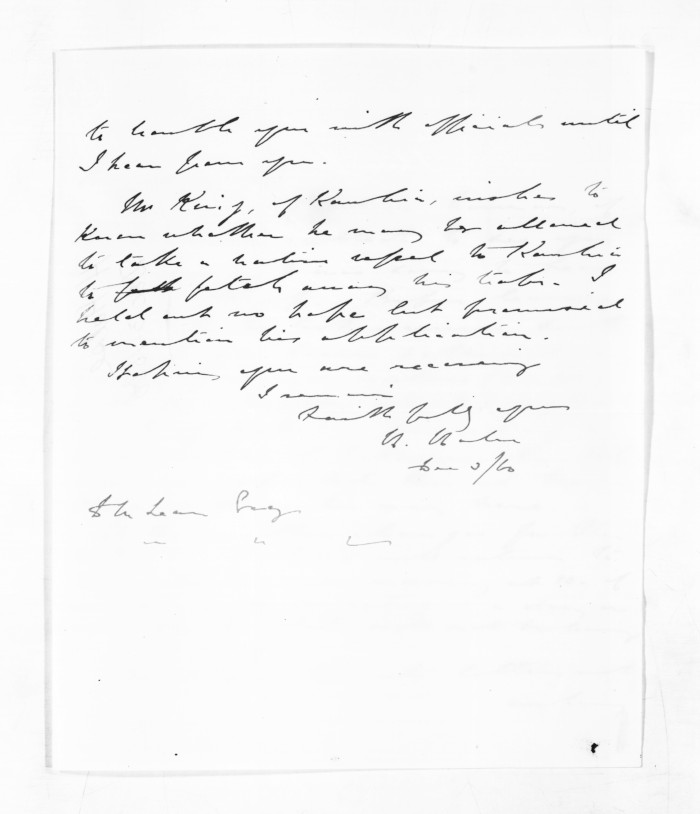 to trouble you with officials until
I hear from you.
Mr King, of Kawhia, wishes to
know whether he may be allowed
to take a native vessel to Kawhia
to fetch away his traps. I
held out no hope but promised
to mention his application.
Hoping you are recovering
I remain
Faithfully yours
H. Halse
Dec 3/60
D McLean Esqr
" " "